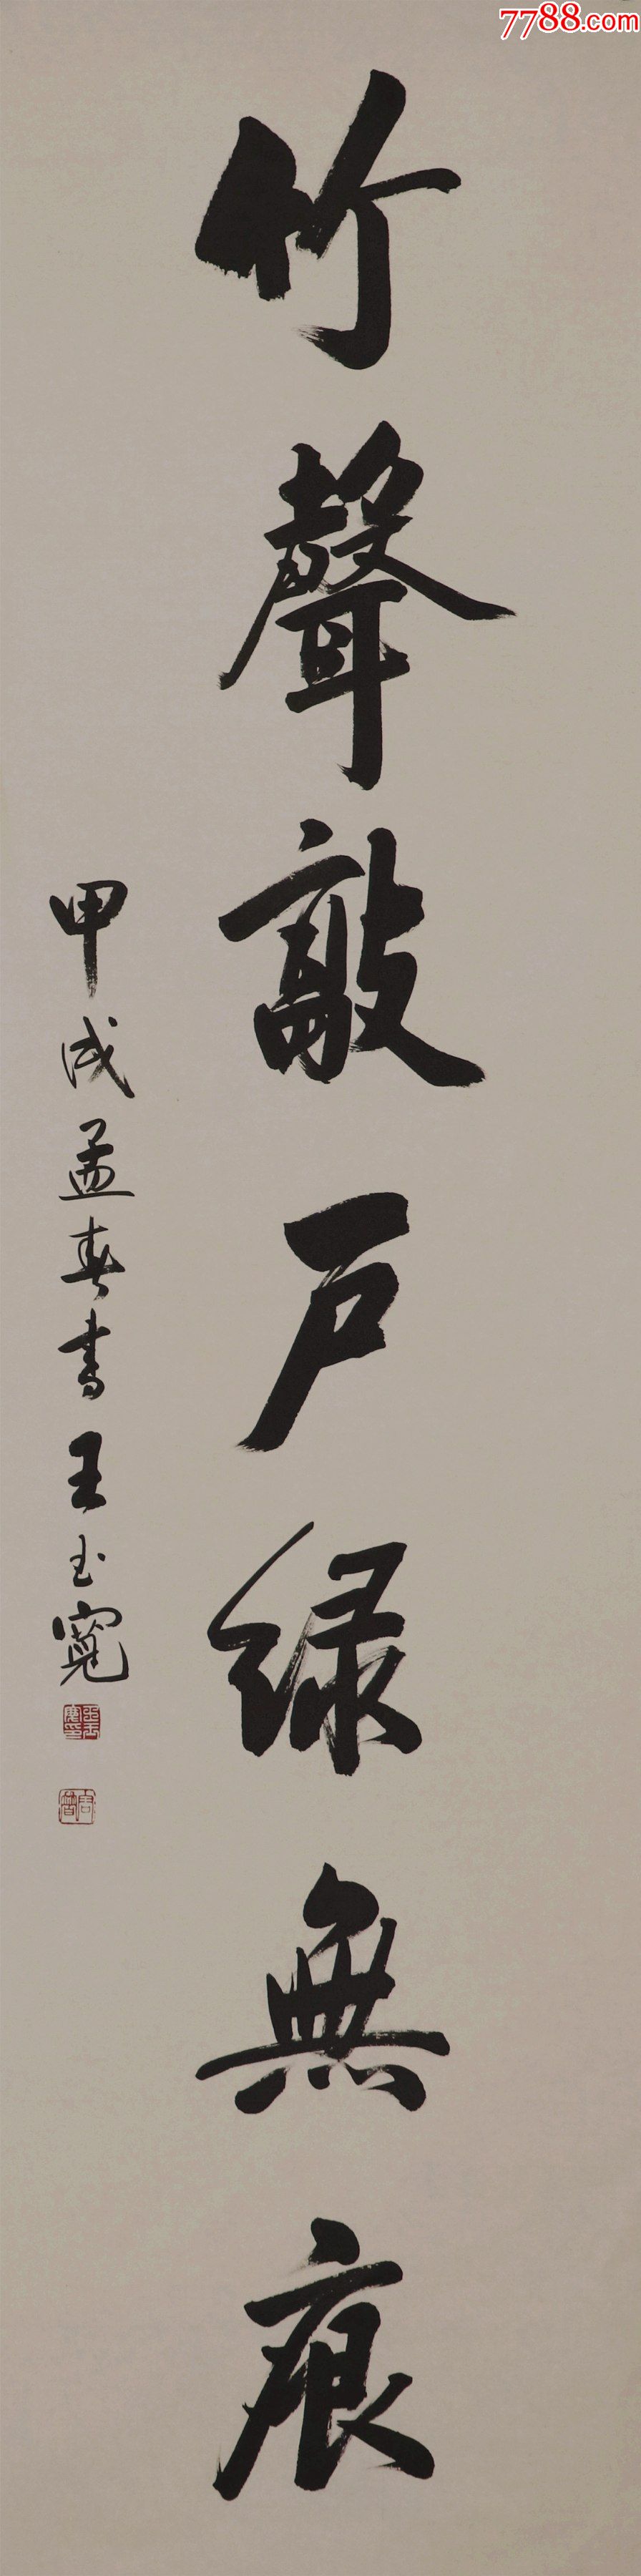 7788.com
竹聲敲戶绿無痕
甲戌孟春書王玉寬